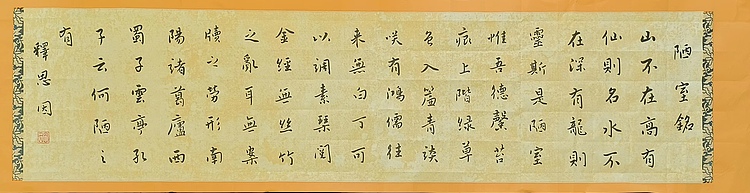 陋室銘
山不在高有
仙則名水不
在深有龍則
靈斯是陋室
惟吾德馨苔
痕上階緑草
色入簾青談
咲有鴻儒往
来無白丁可
以調素琴閲
金經無絲竹
之亂耳無案
牘之勞形南
陽諸葛廬西
蜀子雲亭孔
子云何陋之
有
釋思因